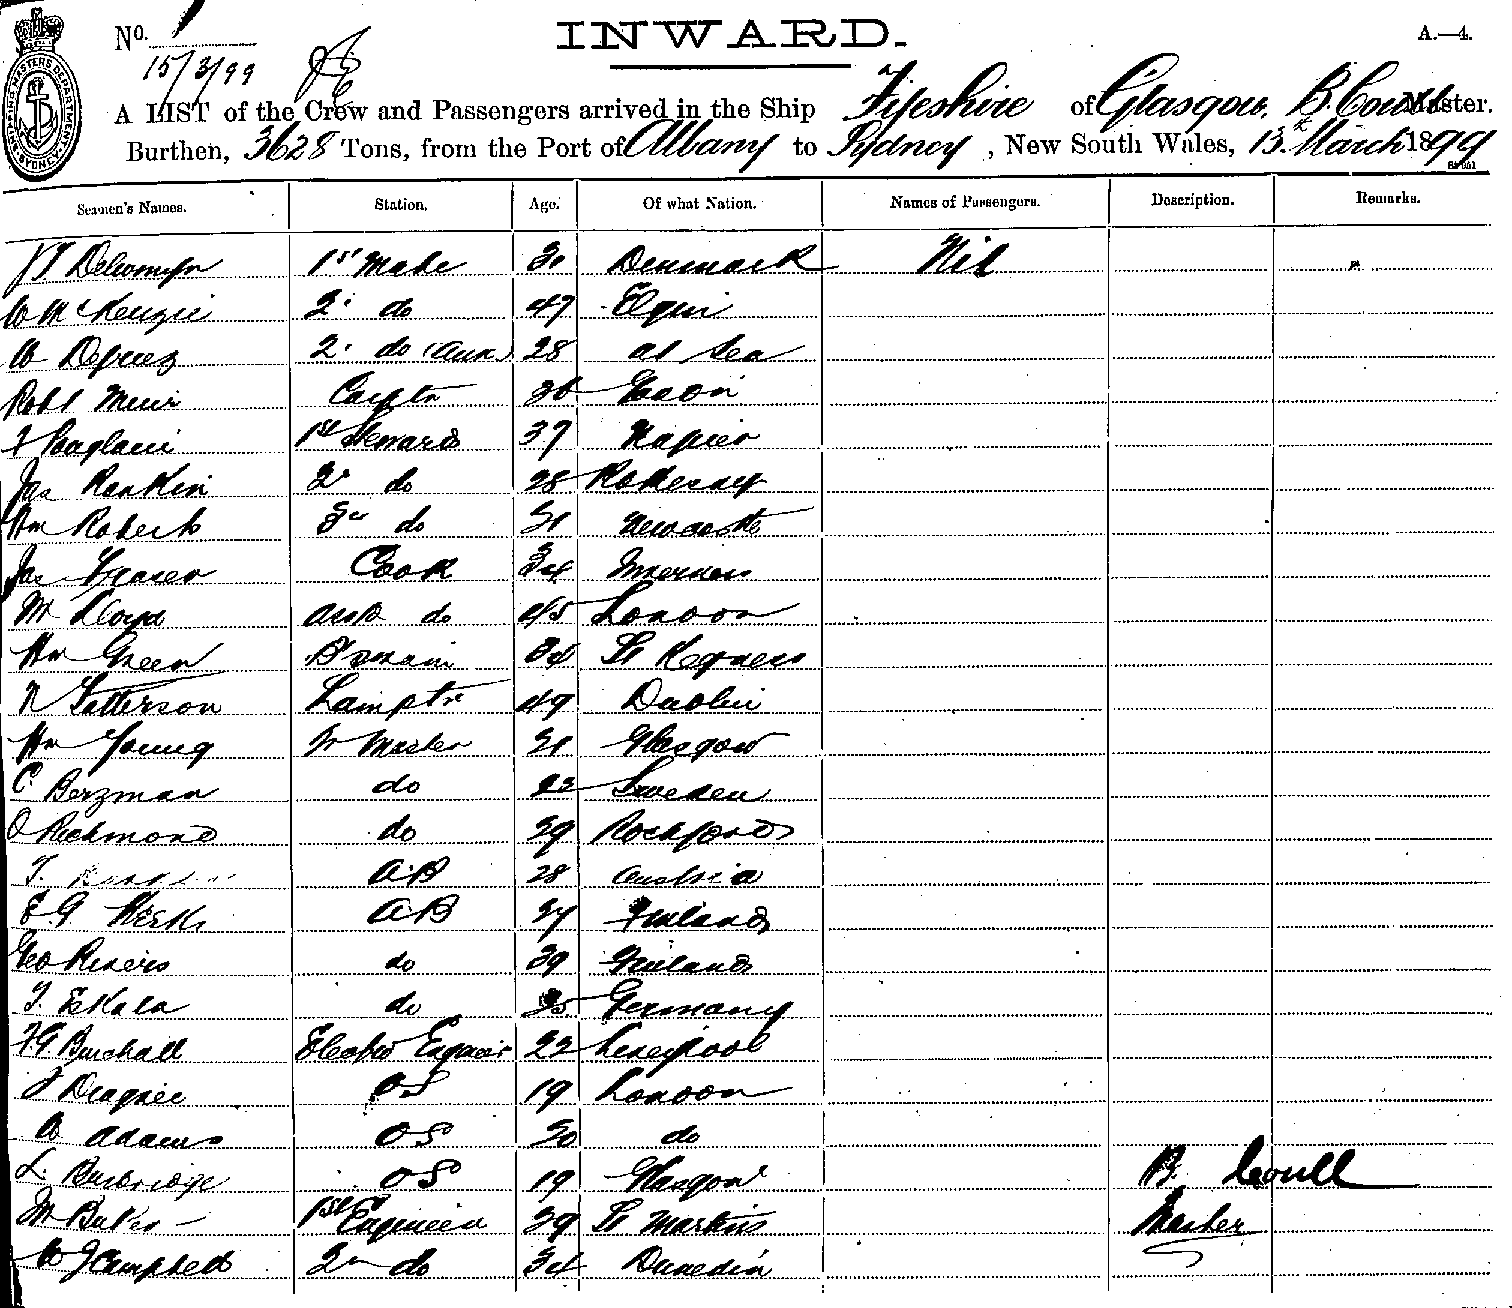 No. 1
INWARD.
A.—4.
15/3/99
A LIST of the Crew and Passengers arrived in the Ship Fifeshire of Glasgow, B. Coull Master.
Burthen, 3628 Tons, from the Port of Albany to Sydney, New South Wales, 13th March 1899
SHIPPING MASTERS DEPARTMENT SYDNEY
Seamen's Names. Station. Age. Of what Nation. Names of Passengers. Description. Remarks.
1st Mate 31 Denmark Nil
W McKenzie 2. do 47 Elgin
W 2. do (Aux) 28 at Sea
Robt Muir Carptr 36
1st Steward 37 Napier
Jas Rankin 2nd do 28 Rothesay
Wm Roberts 3rd do 31 Newcastle
Jas Fraser Cook 34 Inverness
M Lloyd Asst do 45 London
Wm Green B'swain 34 St
N Patterson Lamptr 49 Dublin
Wm Young Qr Master 31 Glasgow
C. Berzman do 22 Sweden
O Richmond do 39 Rochford
T. AB 28 Austria
AB 37 Finland
Geo do 39 Finland
T. Eskala do 35 Germany
F G Burchall Electric Engineer 22 Liverpool
OS 19 London
W Adams OS 30 do
L. Burbridge OS 19 Glasgow
B. Coull
M Baker 1st Engineer 39 St Martins Master
W J Campbell 2nd do 34 Dunedin